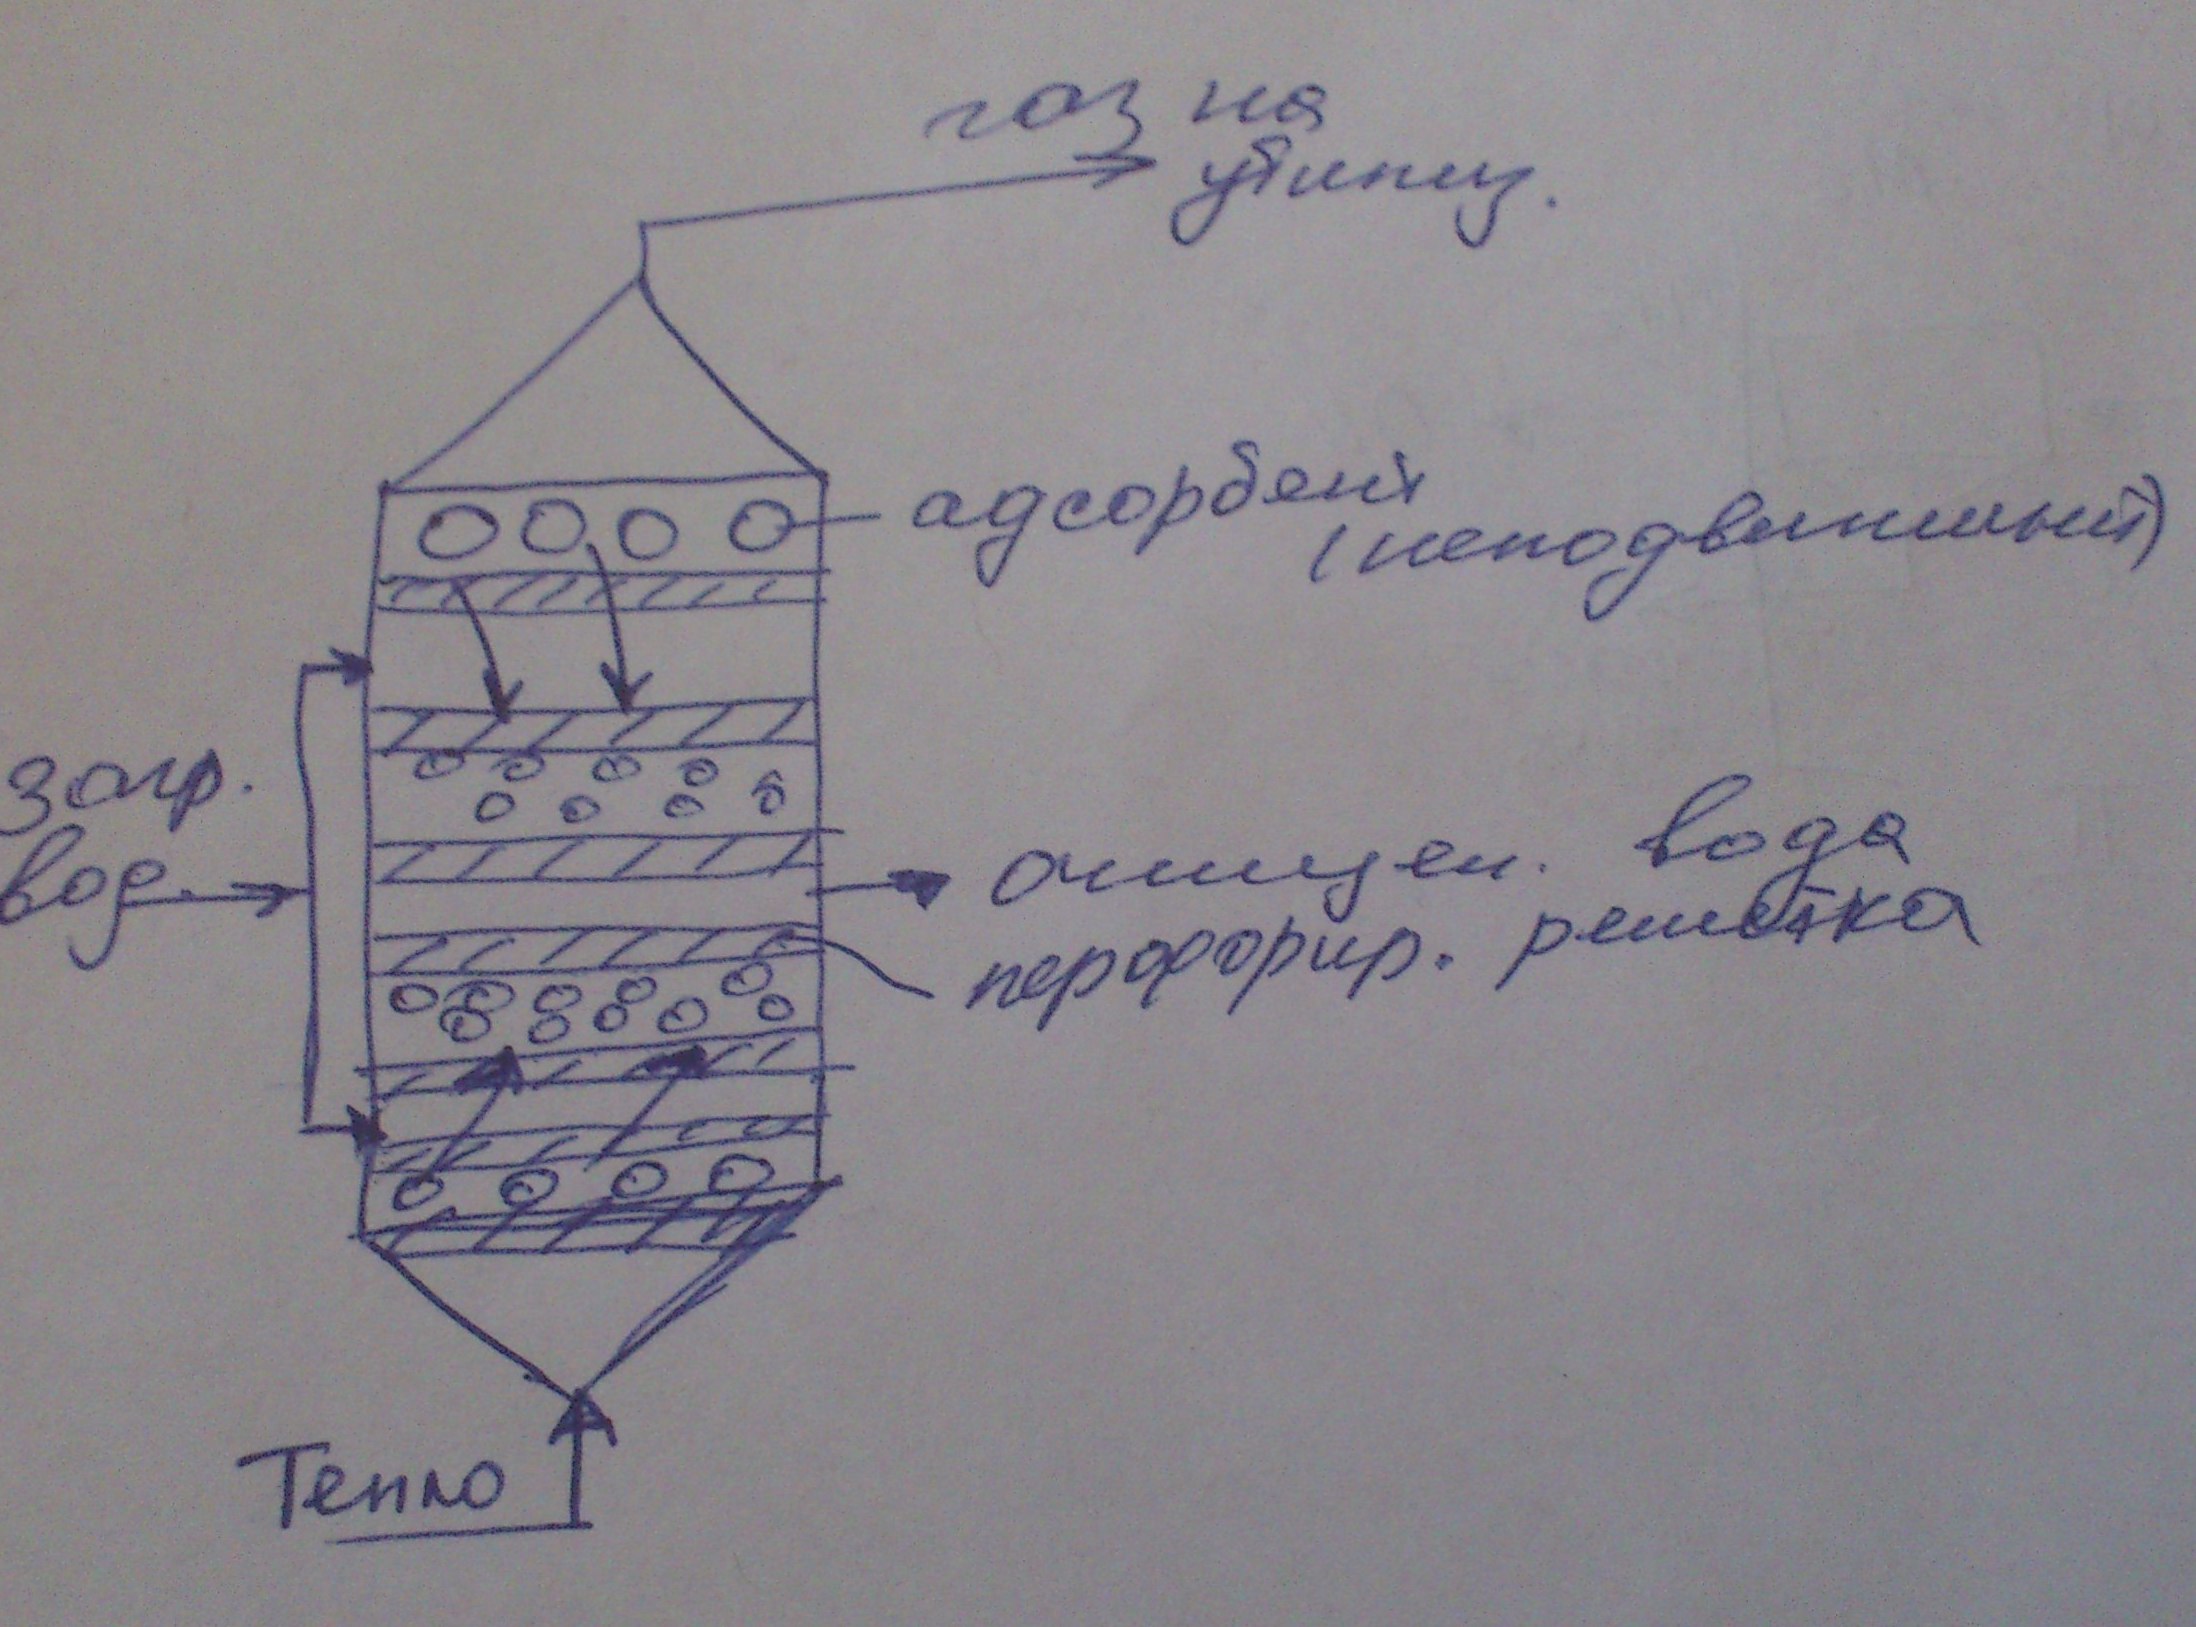 газ на
утилиз.
адсорбент
(неподвижный)
загр.
вод.
очищен. вода
перфорир. решетка
Тепло